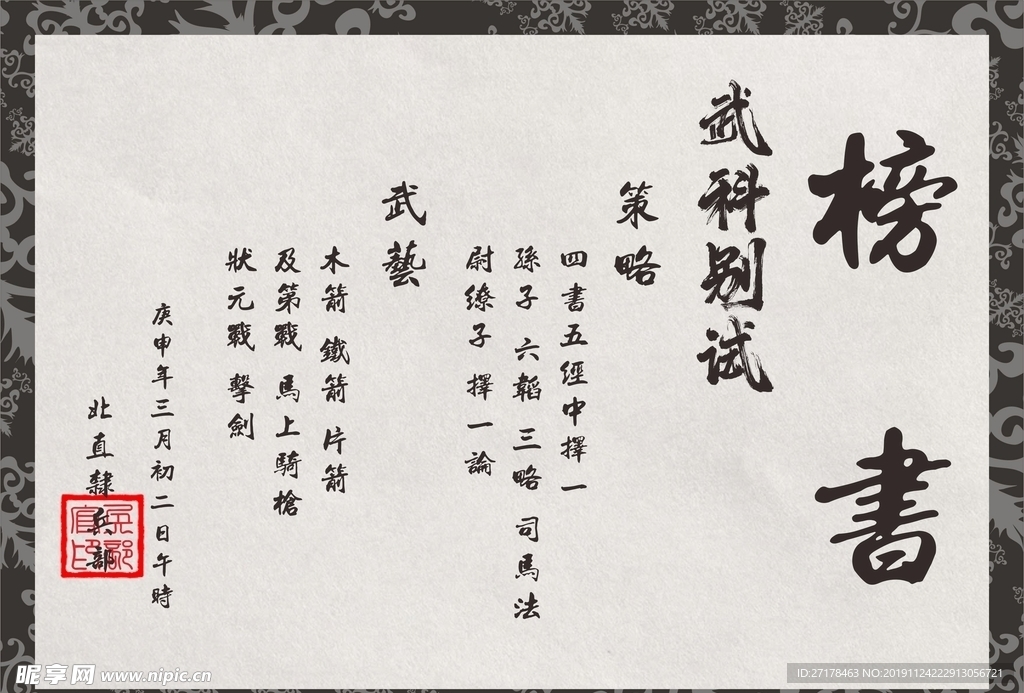 榜書
武科别試
策略
四書五經中擇一
孫子 六韜 三略 司馬法
尉繚子 擇一論
武藝
木箭 鐵箭 片箭
及第戰 馬上騎槍
狀元戰 擊劍
庚申年三月初二日午時
北直隸兵部
兵部官印
昵享网 www.nipic.cn
ID:27178463 NO:20191124222913056721